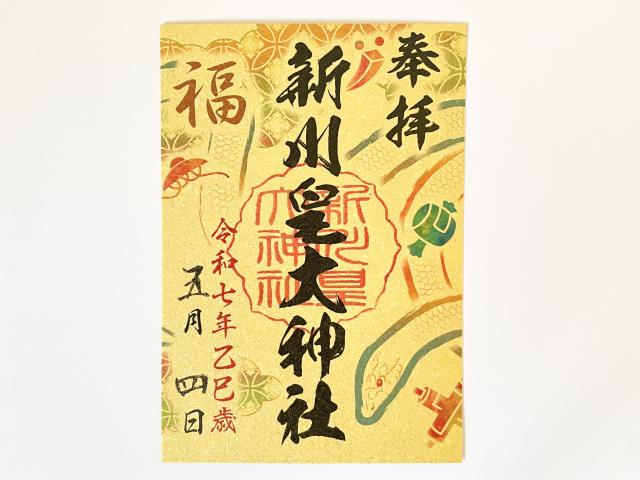 奉拝
新川皇大神社
新川皇
大神社
福
令和七年乙巳歳
五月 四日